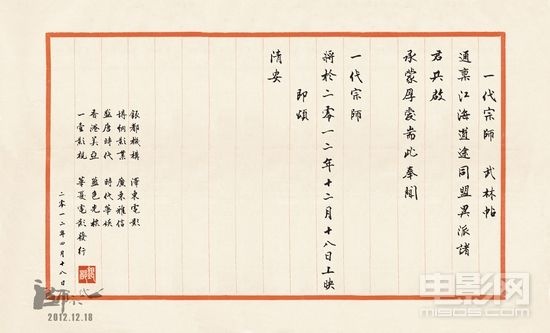 一代宗师　武林帖
通稟江海道途同盟異派諸
君共啟
承蒙厚愛耑此奉聞
一代宗师
將於二零一二年十二月十八日上映
即頌
清安
銀都機構　澤東電影
博納影業　廣東雅信
盛唐時代　時代華娛
香港美亞　藍色光標
一壹影視　華夏電影發行
二零一二年四月十八日
2012.12.18
电影网
m1905.com